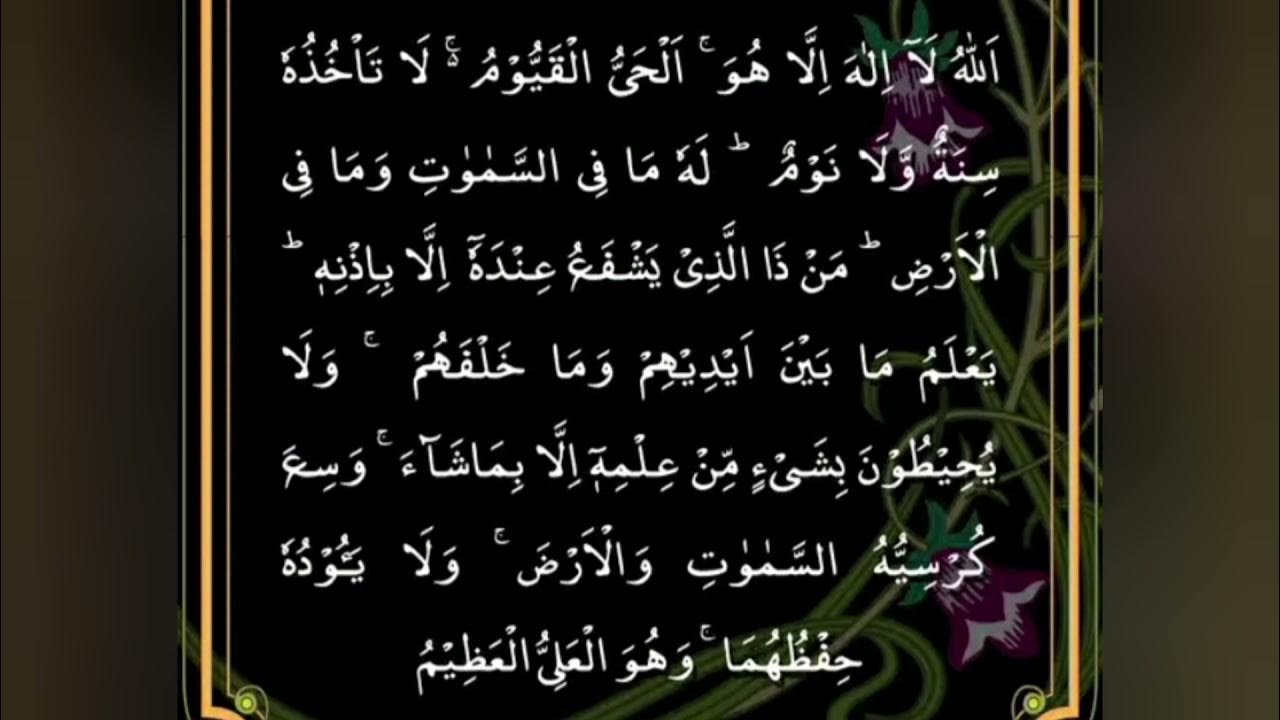 اَللّٰهُ لَاۤ اِلٰهَ اِلَّا هُوَ ۚ اَلْحَیُّ الْقَیُّوْمُ ۬ۚ لَا تَاْخُذُهٗ
سِنَةٌ وَّلَا نَوْمٌ ؕ لَهٗ مَا فِی السَّمٰوٰتِ وَمَا فِی
الْاَرْضِ ؕ مَنْ ذَا الَّذِیْ یَشْفَعُ عِنْدَهٗۤ اِلَّا بِاِذْنِهٖ ؕ
یَعْلَمُ مَا بَیْنَ اَیْدِیْهِمْ وَمَا خَلْفَهُمْ ۚ وَلَا
یُحِیْطُوْنَ بِشَیْءٍ مِّنْ عِلْمِهٖۤ اِلَّا بِمَاشَآءَ ۚ وَسِعَ
كُرْسِیُّهُ السَّمٰوٰتِ وَالْاَرْضَ ۚ وَلَا یَـُٔوْدُهٗ
حِفْظُهُمَا ۚ وَهُوَ الْعَلِیُّ الْعَظِیْمُ